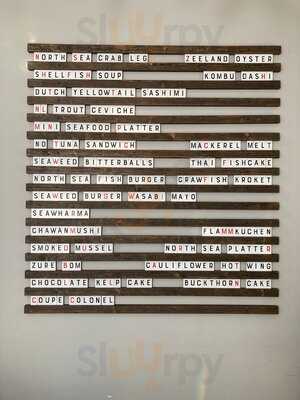 Sluurpy
NORTH SEA CRAB LEG ZEELAND OYSTER
SHELLFISH SOUP KOMBU DASHI
DUTCH YELLOWTAIL SASHIMI
NL TROUT CEVICHE
MINI SEAFOOD PLATTER
NO TUNA SANDWICH MACKEREL MELT
SEAWEED BITTERBALLS THAI FISHCAKE
NORTH SEA FISH BURGER CRAWFISH KROKET
SEAWEED BURGER WASABI MAYO
SEAWHARMA
CHAWANMUSHI FLAMMKUCHEN
SMOKED MUSSEL NORTH SEA PLATTER
ZURE BOM CAULIFLOWER HOT WING
CHOCOLATE KELP CAKE BUCKTHORN CAKE
COUPE COLONEL
Sluurpy